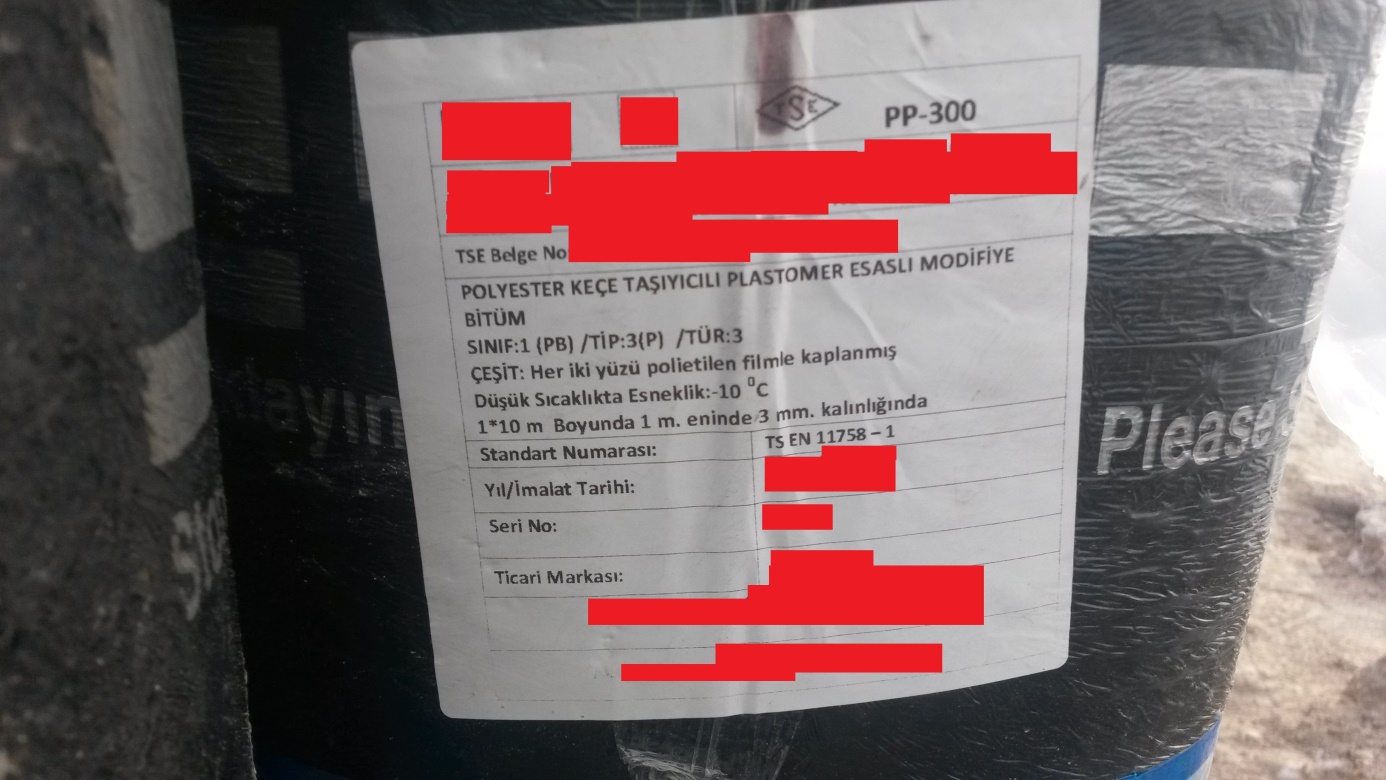 TSE PP-300
TSE Belge No
POLYESTER KEÇE TAŞIYICILI PLASTOMER ESASLI MODİFİYE
BİTÜM
SINIF:1 (PB) /TİP:3(P) /TÜR:3
ÇEŞİT: Her iki yüzü polietilen filmle kaplanmış
Düşük Sıcaklıkta Esneklik:-10 ⁰C
1*10 m Boyunda 1 m. eninde 3 mm. kalınlığında
Standart Numarası: TS EN 11758 – 1
Yıl/İmalat Tarihi:
Seri No:
Ticari Markası:
Please